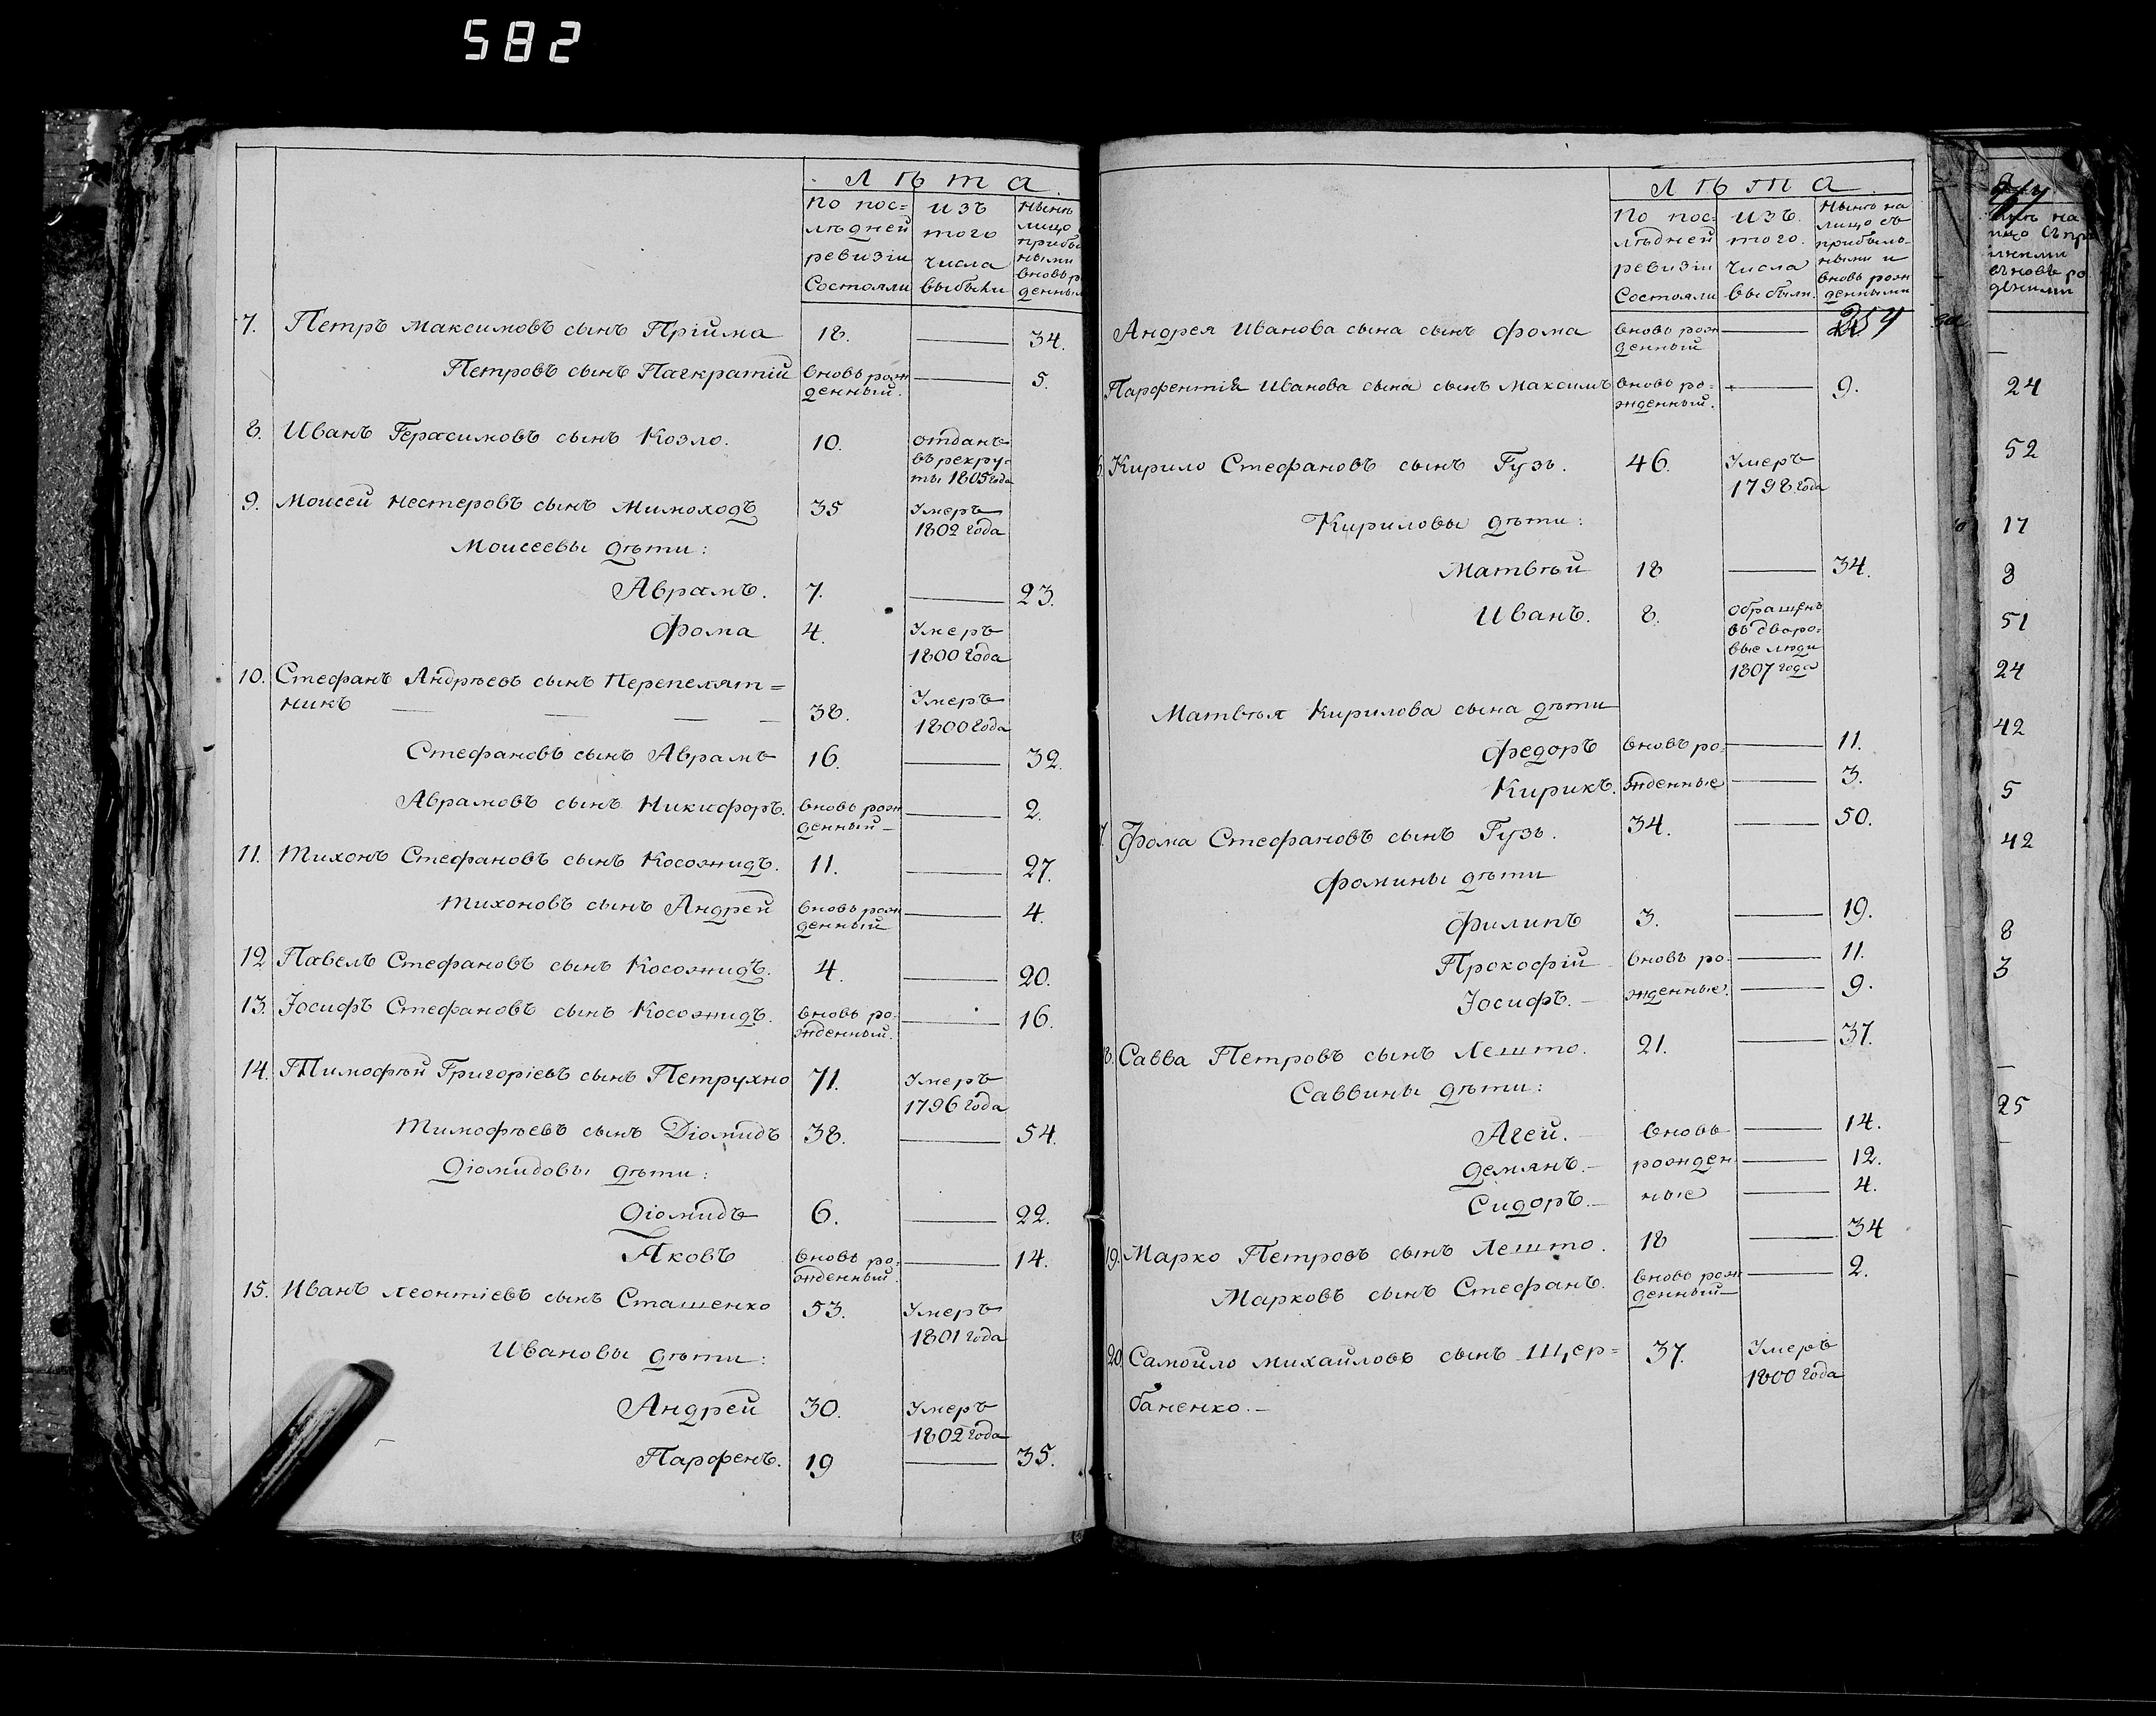 582
Лѣта.
По пос=
лѣдней
ревизіи
Состояли
изъ
того
числа
выбыли
Нынѣ
лицо
прибы
ными
вновь р
денным
7. Петръ Максимовъ сынъ Прійма 18. 34.
Петровъ сынъ Пагкратій вновь рож 5.
денный.
8. Иванъ Герасимовъ сынъ Козло. 10. отданъ
въ рекру-
ты 1805 года
9. Моисей Нестеровъ сынъ Мимоходъ 35 Умеръ
1802 года
Моисеевы дѣти:
Аврамъ. 7. 23.
Фома 4. Умеръ
1800 года
10. Стефанъ Андрѣевъ сынъ Перепелят=
никъ 38. Умеръ
1800 года
Стефановъ сынъ Аврамъ 16. 32.
Аврамовъ сынъ Никифоръ. вновь рож 2.
денный
11. Тихонъ Стефановъ сынъ Косожидъ. 11. 27.
Тихоновъ сынъ Андрей вновь рож 4.
денный
12 Павелъ Стефановъ сынъ Косожидъ. 4. 20.
13. Іосифъ Стефановъ сынъ Косожидъ. вновь ро- 16.
жденный.
14. Тимофѣй Григоріевъ сынъ Петрухно 71. Умеръ
1796 года
Тимофѣевъ сынъ Діомидъ 38. 54.
Діомидовы дѣти:
Діомидъ 6. 22.
Яковъ вновь ро- 14.
жденный.
15. Иванъ Леонтіевъ сынъ Сташенко 53. Умеръ
1801 года
Ивановы дѣти:
Андрей 30. Умеръ
1802 года
Парфенъ. 19 35.
Лѣта
По пос=
лѣдней
ревизіи
Состояли
изъ.
того.
числа
выбыли.
Нынѣ на
лицо съ
прибыль-
ными и
вновь рож
денными
Андрея Иванова сына сынъ Фома вновь рож
денный
Парфентія Иванова сына сынъ Максимъ вновь ро- 9.
жденный.
6. Кирило Стефановъ сынъ Гузь. 46. Умеръ
1798 года
Кириловы дѣти:
Матвѣй 18 34.
Иванъ. 8. обращенъ
въ дворо-
вые люди
1807 года
Матвѣя Кирилова сына дѣти
Федоръ вновь ро- 11.
Кирикъ. жденные 3.
7. Фома Стефановъ сынъ Гузь. 34. 50.
Фомины дѣти
Филипъ 3. 19.
Прокофій вновь ро- 11.
Іосифъ. жденные. 9.
8. Савва Петровъ сынъ Лешто. 21. 37.
Саввины дѣти:
Агей. вновь 14.
Демянъ. рожден 12.
Сидоръ. ные 4.
19. Марко Петровъ сынъ Лешто. 18 34
Марковъ сынъ Стефанъ. вновь рож 2.
денный
20. Самойло Михайловъ сынъ Щер= 37. Умеръ
1800 года
баненко.
24
52
17
8
51
24
42
5
42
8
3
25